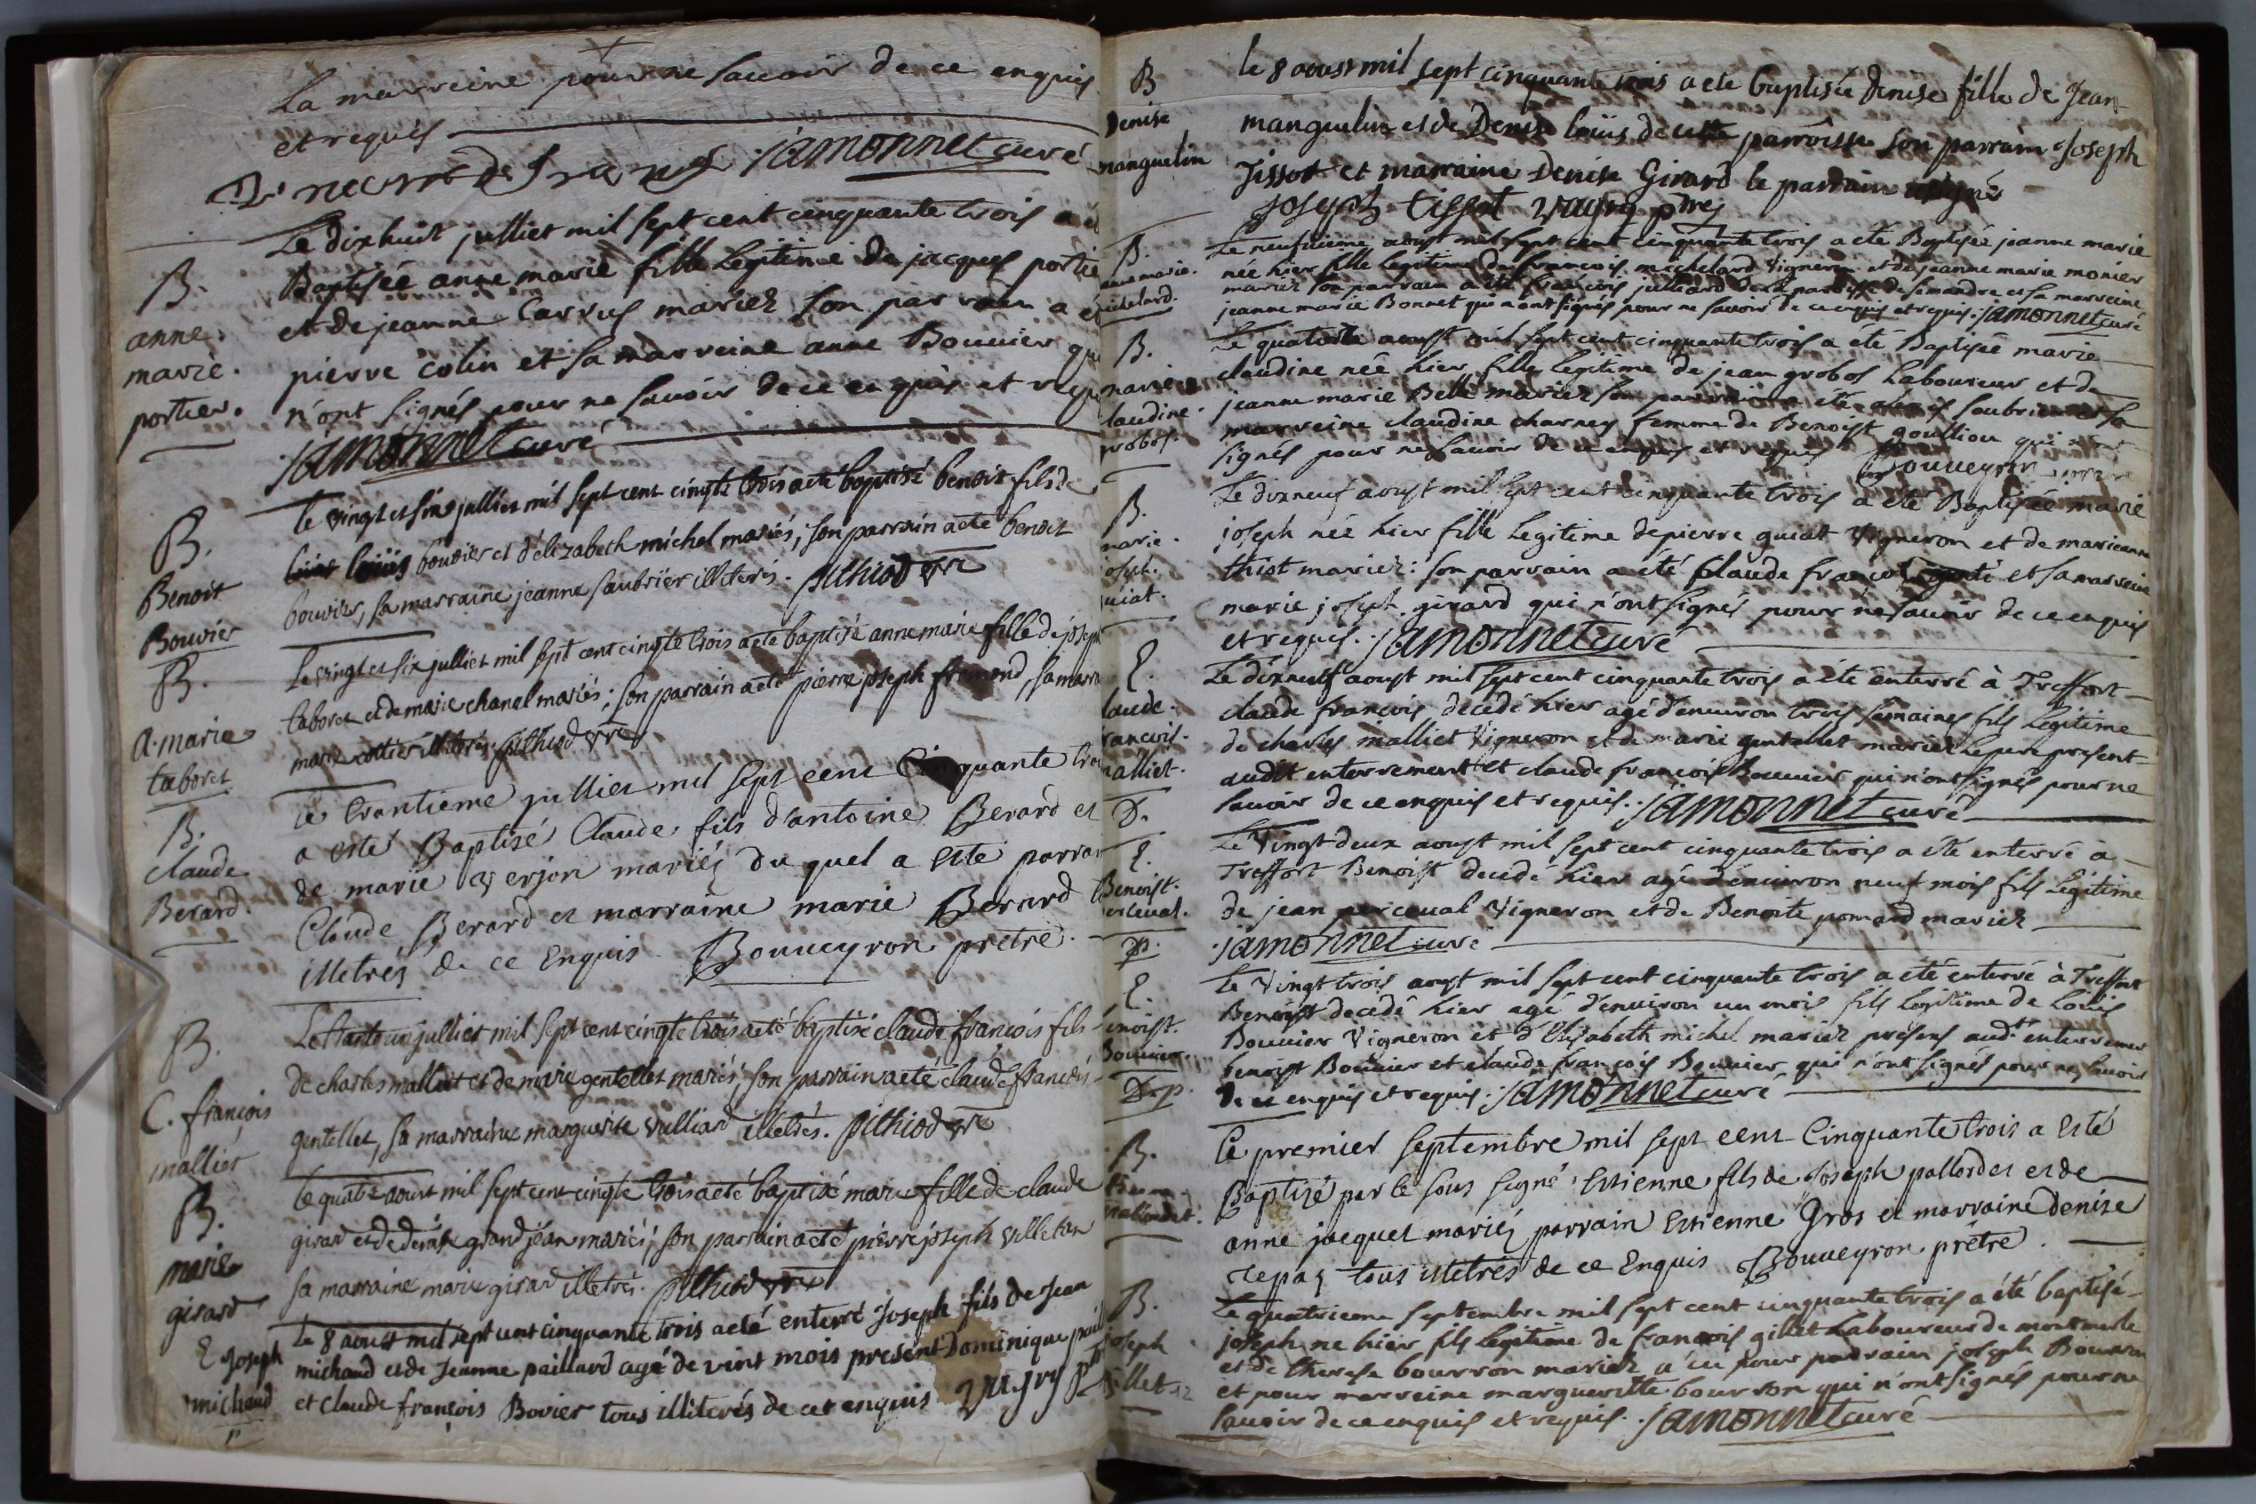 La marreine pour ne savoir de ce enquis
et requis
jamonnet curé
B.
anne.
marie.
portier.
Le dixhuit julliet mil sept cent cinquante trois a
Baptisée anne marie fille Legitime de jacques portie
et de jeanne Carrus mariez son parrain a
pierre colin et sa marreine anne Bouvier
n'ont signés pour ne savoir de ce enquis et
jamonnet curé
B.
Benoit
Bouvier
le vingt et six julliet mil sept cent cinqte trois a eté baptisé benoit fils de
louis bouvier et d'élizabeth michel mariés; son parrain a eté benoit
bouvier, sa marraine jeanne saubrier illiterés. pithiod vre
B.
a. marie
taboret
Le vingt et six julliet mil sept cent cinqte trois a eté baptisé anne marie fille de joseph
taboret et de marie chanel mariés; son parrain a eté pierre joseph fromond, sa marra
marie cottier illiterés. pithiod vre
B.
claude
Berard.
Le trantieme julliet mil sept cent Cinquante
a esté Baptisé Claude fils d'antoine Berard et
de marie verjon mariés du quel a esté parra
Claude Berard et marraine marie Berard
illetrés de ce Enquis. Bouveyron prêtre.
B.
C. françois
malliet
Le trante un julliet mil sept cent cinqte trois a eté baptisé claude françois fils
de charles malliet et de marie gentellet mariés; son parrain a eté claude françois
gentellet, sa marraine marguerite vulliard illetrés. pithiod vre
B.
marie
girard
Le quatre aoust mil sept cent cinqte trois a eté baptisé marie fille de claude
girard et de denise grand jean mariés; son parrain a eté pierre joseph
sa marraine marie girard illetrés. pithiod vre
E joseph
michaud
Le 8 aoust mil sept cent cinquante trois a eté enterré Joseph fils de Jean
michaud et de Jeanne paillard agé de vint mois present Dominique
et claude françois Bovier tous illiterés de cet enquis
B
Denise
manguelin
le 8 aoust mil sept cinquante trois a ete baptisée Denise fille de Jean
manguelin et de Denise loüis de cette parroisse son parrain Joseph
Tissot et marraine Denise Girard le parrain
joseph tissot
B.
Le neufvieme aoust mil sept cent cinquante trois a eté Baptisée jeanne marie
née hier fille legitime de françois michelard Vigneron et de jeanne marie monier
mariez son parrain a été françois julliard de la paroisse de simandre et sa marreine
jeanne marie Bonnet qui n'ont signés pour ne savoir de ce enquis et requis. jamonnet curé
B.
marie
claudine.
grobos.
Le quatorze aoust mil sept cent cinquante trois a été Baptisée marie
claudine née hier fille legitime de jean grobos Laboureur et de
jeanne marie Belle mariez son parrain a été saubrier et sa
marreine claudine charney femme de Benoist goullion qui n'ont
signés pour ne savoir de ce enquis et requis Bouveyron
B.
marie.
joseph.
quiat.
Le dixneuf aoust mil sept cent cinquante trois a eté Baptisée marie
joseph née hier fille Legitime de pierre quiat Vigneron et de marieanne
thiot mariez: son parrain a été Claude françois et sa marreine
marie joseph girard qui n'ont signés pour ne savoir de ce enquis
et requis. jamonnet curé
E.
claude.
françois.
malliet.
D.
Le dixneuf aoust mil sept cent cinquante trois a été enterré à Treffort
claude françois decedé hier agé d'environ trois semaines fils legitime
de charles malliet Vigneron et de marie gentellet mariez le pere present
audit enterrement et claude françois Bouvier qui n'ont signés pour ne
savoir de ce enquis et requis. jamonnet curé
E.
Benoist.
perceval.
p.
Le Vingt deux aoust mil sept cent cinquante trois a eté enterré a
Treffort Benoist decedé hier agé d'environ neuf mois fils Legitime
de jean perceval Vigneron et de Benoite pomard mariez
jamonnet curé
E.
Benoist.
Bouvier.
D. p.
Le Vingt trois aoust mil sept cent cinquante trois a eté enterré à Treffort
Benoist decedé hier agé d'environ un mois fils Legitime de Louis
Bouvier Vigneron et d'Elisabeth michel mariez présens audt enterrement
benoist Bouvier et claude françois Bouvier qui n'ont signés pour ne savoir
de ce enquis et requis. jamonnet curé
B.
Le premier septembre mil sept cent Cinquante trois a Esté
Baptizé par le sous signé Estienne fils de Joseph pallordet et de
anne jacquet mariés parrain Estienne Gros et marraine denise
repas tous illetrés de ce Enquis Bouveyron prêtre.
B.
joseph
gillet
Le quatrieme septembre mil sept cent cinquante trois a été baptisé
joseph né hier fils legitime de françois gillet Laboureur de montmerle
et de therese bourron mariez a eu pour parrain joseph Bourron
et pour marreine marguerite bourron qui n'ont signés pour ne
savoir de ce enquis et requis. jamonnet curé